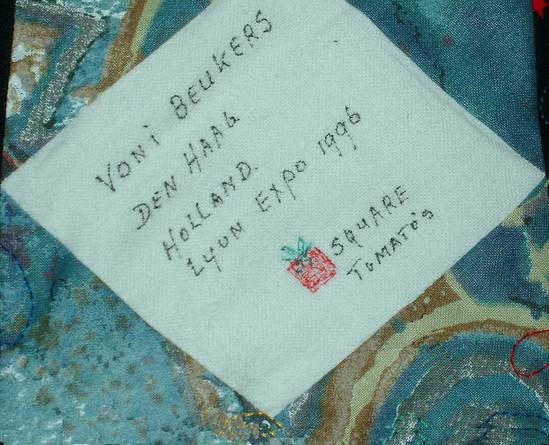 VONI BEUKERS
DEN HAAG
HOLLAND.
LYON EXPO 1996
SQUARE
TOMATO'S